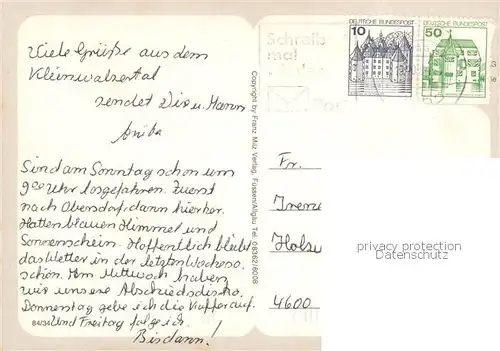 Viele Grüße aus dem
Kleinwalsertal
sendet Dir u. Hann
Anika
Sind am Sonntag schon um
9⁰⁰ Uhr losgefahren. Zuerst
nach Obersdorf, dann hierher.
Hatten blauen Himmel und
Sonnenschein. Hoffentlich bleibt
das Wetter in der letzten Woche so
schön. Am Mittwoch haben
wir unsere Abschiedsdisko.
Donnerstag gebe ich die Koffer auf.
Und Freitag folge ich.
Bis dann!
Copyright by Franz Milz Verlag, Füssen/Allgäu Tel. 08362/6008
Schreib
mal
DEUTSCHE BUNDESPOST
10
DEUTSCHE BUNDESPOST
50
Fr.
Irene
Hols
4600
privacy protection
ansichtskarten-center.de